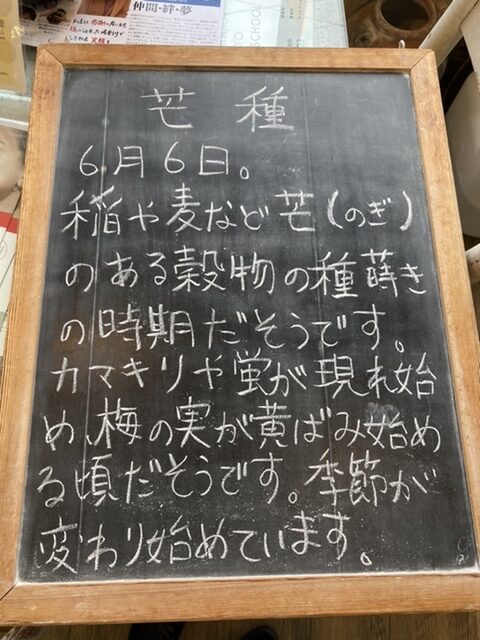 仲間・絆・夢
芒種
6月6日。
稲や麦など芒(のぎ)
のある穀物の種蒔き
の時期だそうです。
カマキリや蛍が現れ始
め、梅の実が黄ばみ始め
る頃だそうです。季節が
変わり始めています。